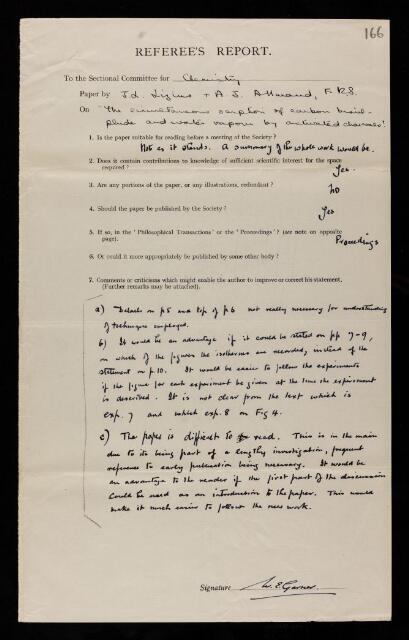 166
REFEREE'S REPORT.
To the Sectional Committee for Chemistry
Paper by J. L. + A. J. Allmand, F.R.S.
On "The simultaneous sorption of carbon bisul-
phide and water vapour by activated charcoals."
1. Is the paper suitable for reading before a meeting of the Society?
Not as it stands. A summary of the whole work would be.
2. Does it contain contributions to knowledge of sufficient scientific interest for the space
required?
Yes.
3. Are any portions of the paper, or any illustrations, redundant?
No
4. Should the paper be published by the Society?
Yes
5. If so, in the 'Philosophical Transactions' or the 'Proceedings'? (see note on opposite
page).
Proceedings
6. Or could it more appropriately be published by some other body?
7. Comments or criticisms which might enable the author to improve or correct his statement.
(Further remarks may be attached).
a) Details on p5 and top of p6 not really necessary for understanding
of technique employed.
b) It would be an advantage if it could be stated on pp 7-9,
in which of the figures the isotherms are recorded, instead of the
statement on p.10. It would be easier to follow the experiments
if the figure for each experiment be given at the time the experiment
is described. It is not clear from the text which is
exp. 7 and which exp. 8 on Fig 4.
c) The paper is difficult to read. This is in the main
due to its being part of a lengthy investigation, frequent
reference to early publication being necessary. It would be
an advantage to the reader if the first part of the discussion
could be used as an introduction to the paper. This would
make it much easier to follow the new work.
Signature W. E. Garner